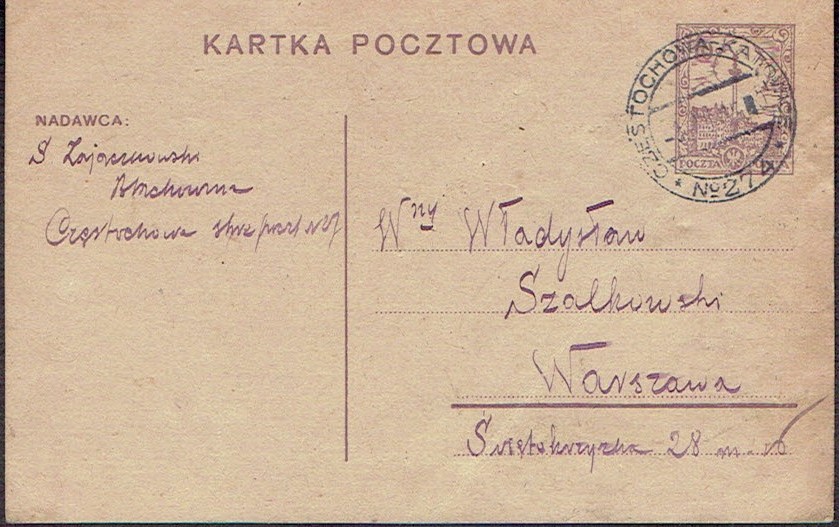 KARTKA POCZTOWA
CZĘSTOCHOWA-KATOWICE
No 274
POCZTA
NADAWCA:
S Zajączkowski
Blachownia
Częstochowa skrz/poczt
Wny Władysław
Szalkowski
Warszawa
Świętokrzyska 28 m.